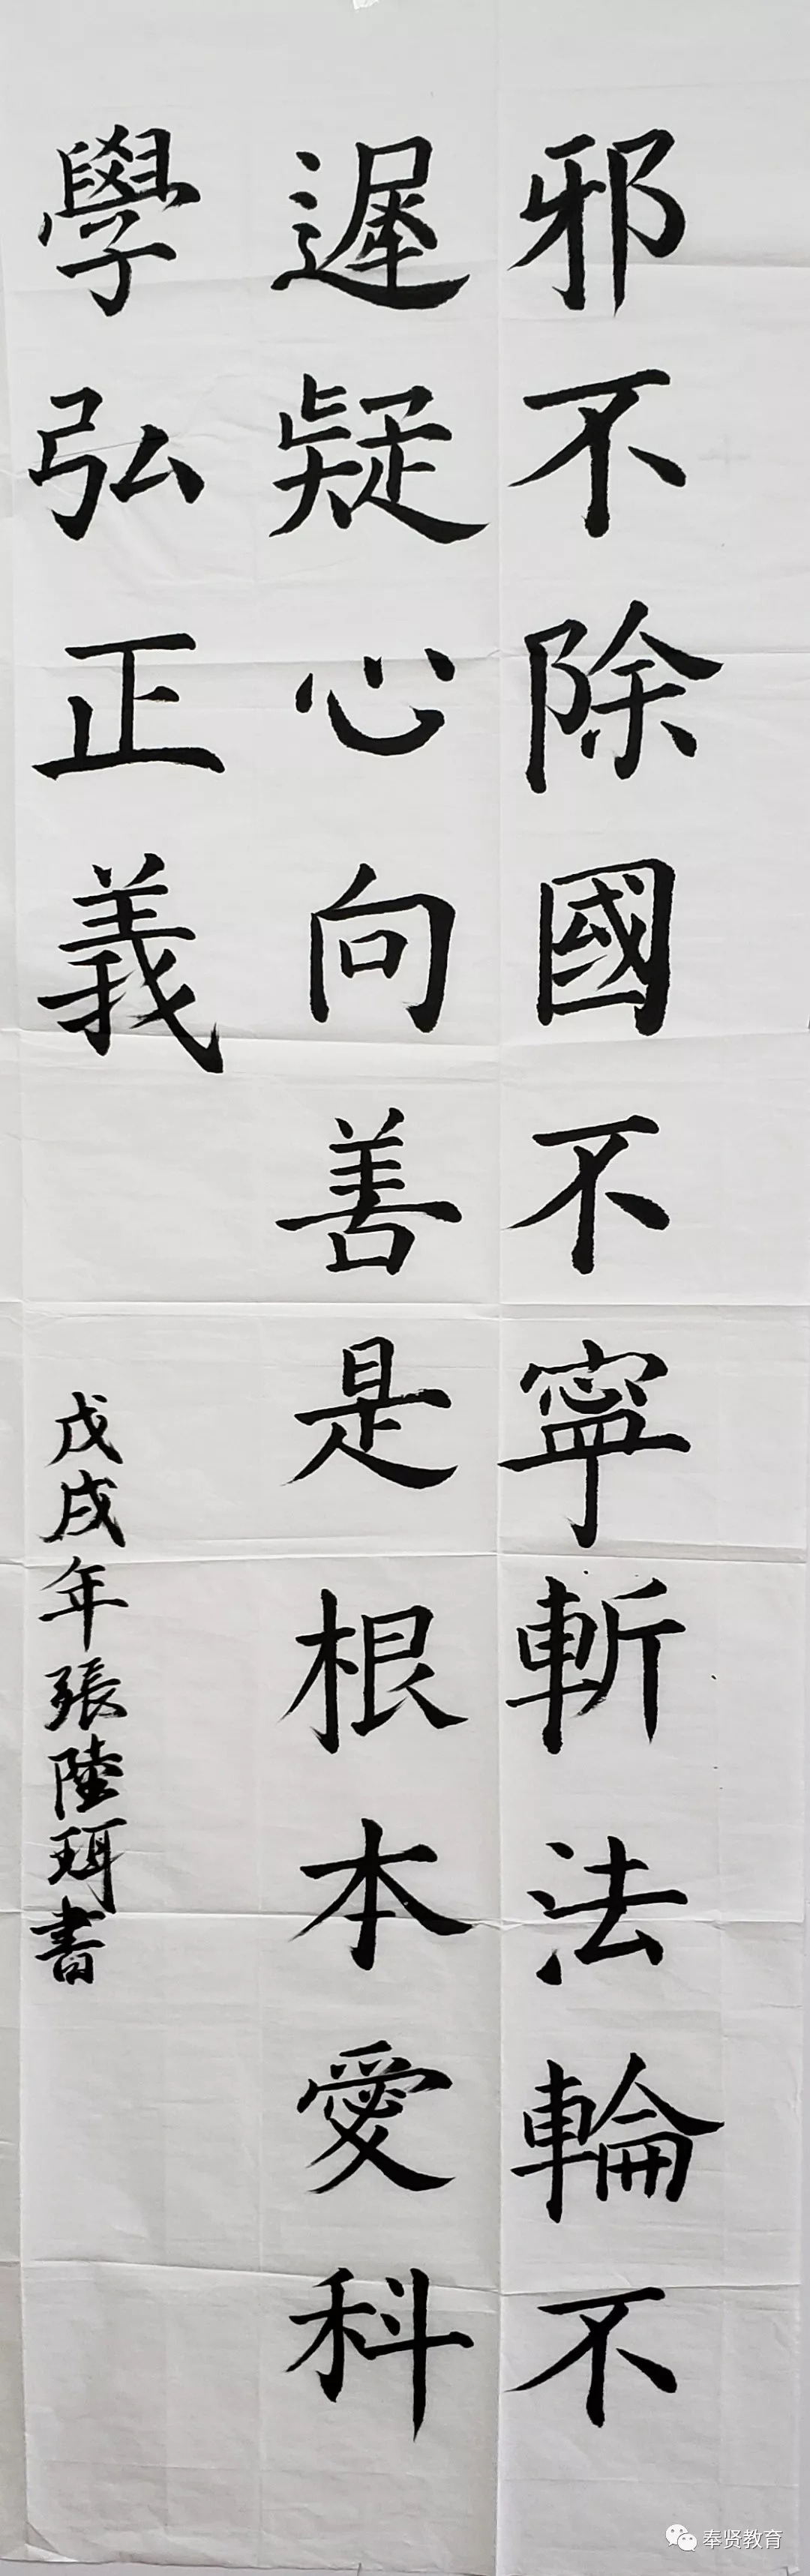 邪不除國不寧斬法輪不
遲疑心向善是根本愛科
學弘正義
戊戌年張陸珥書
奉贤教育